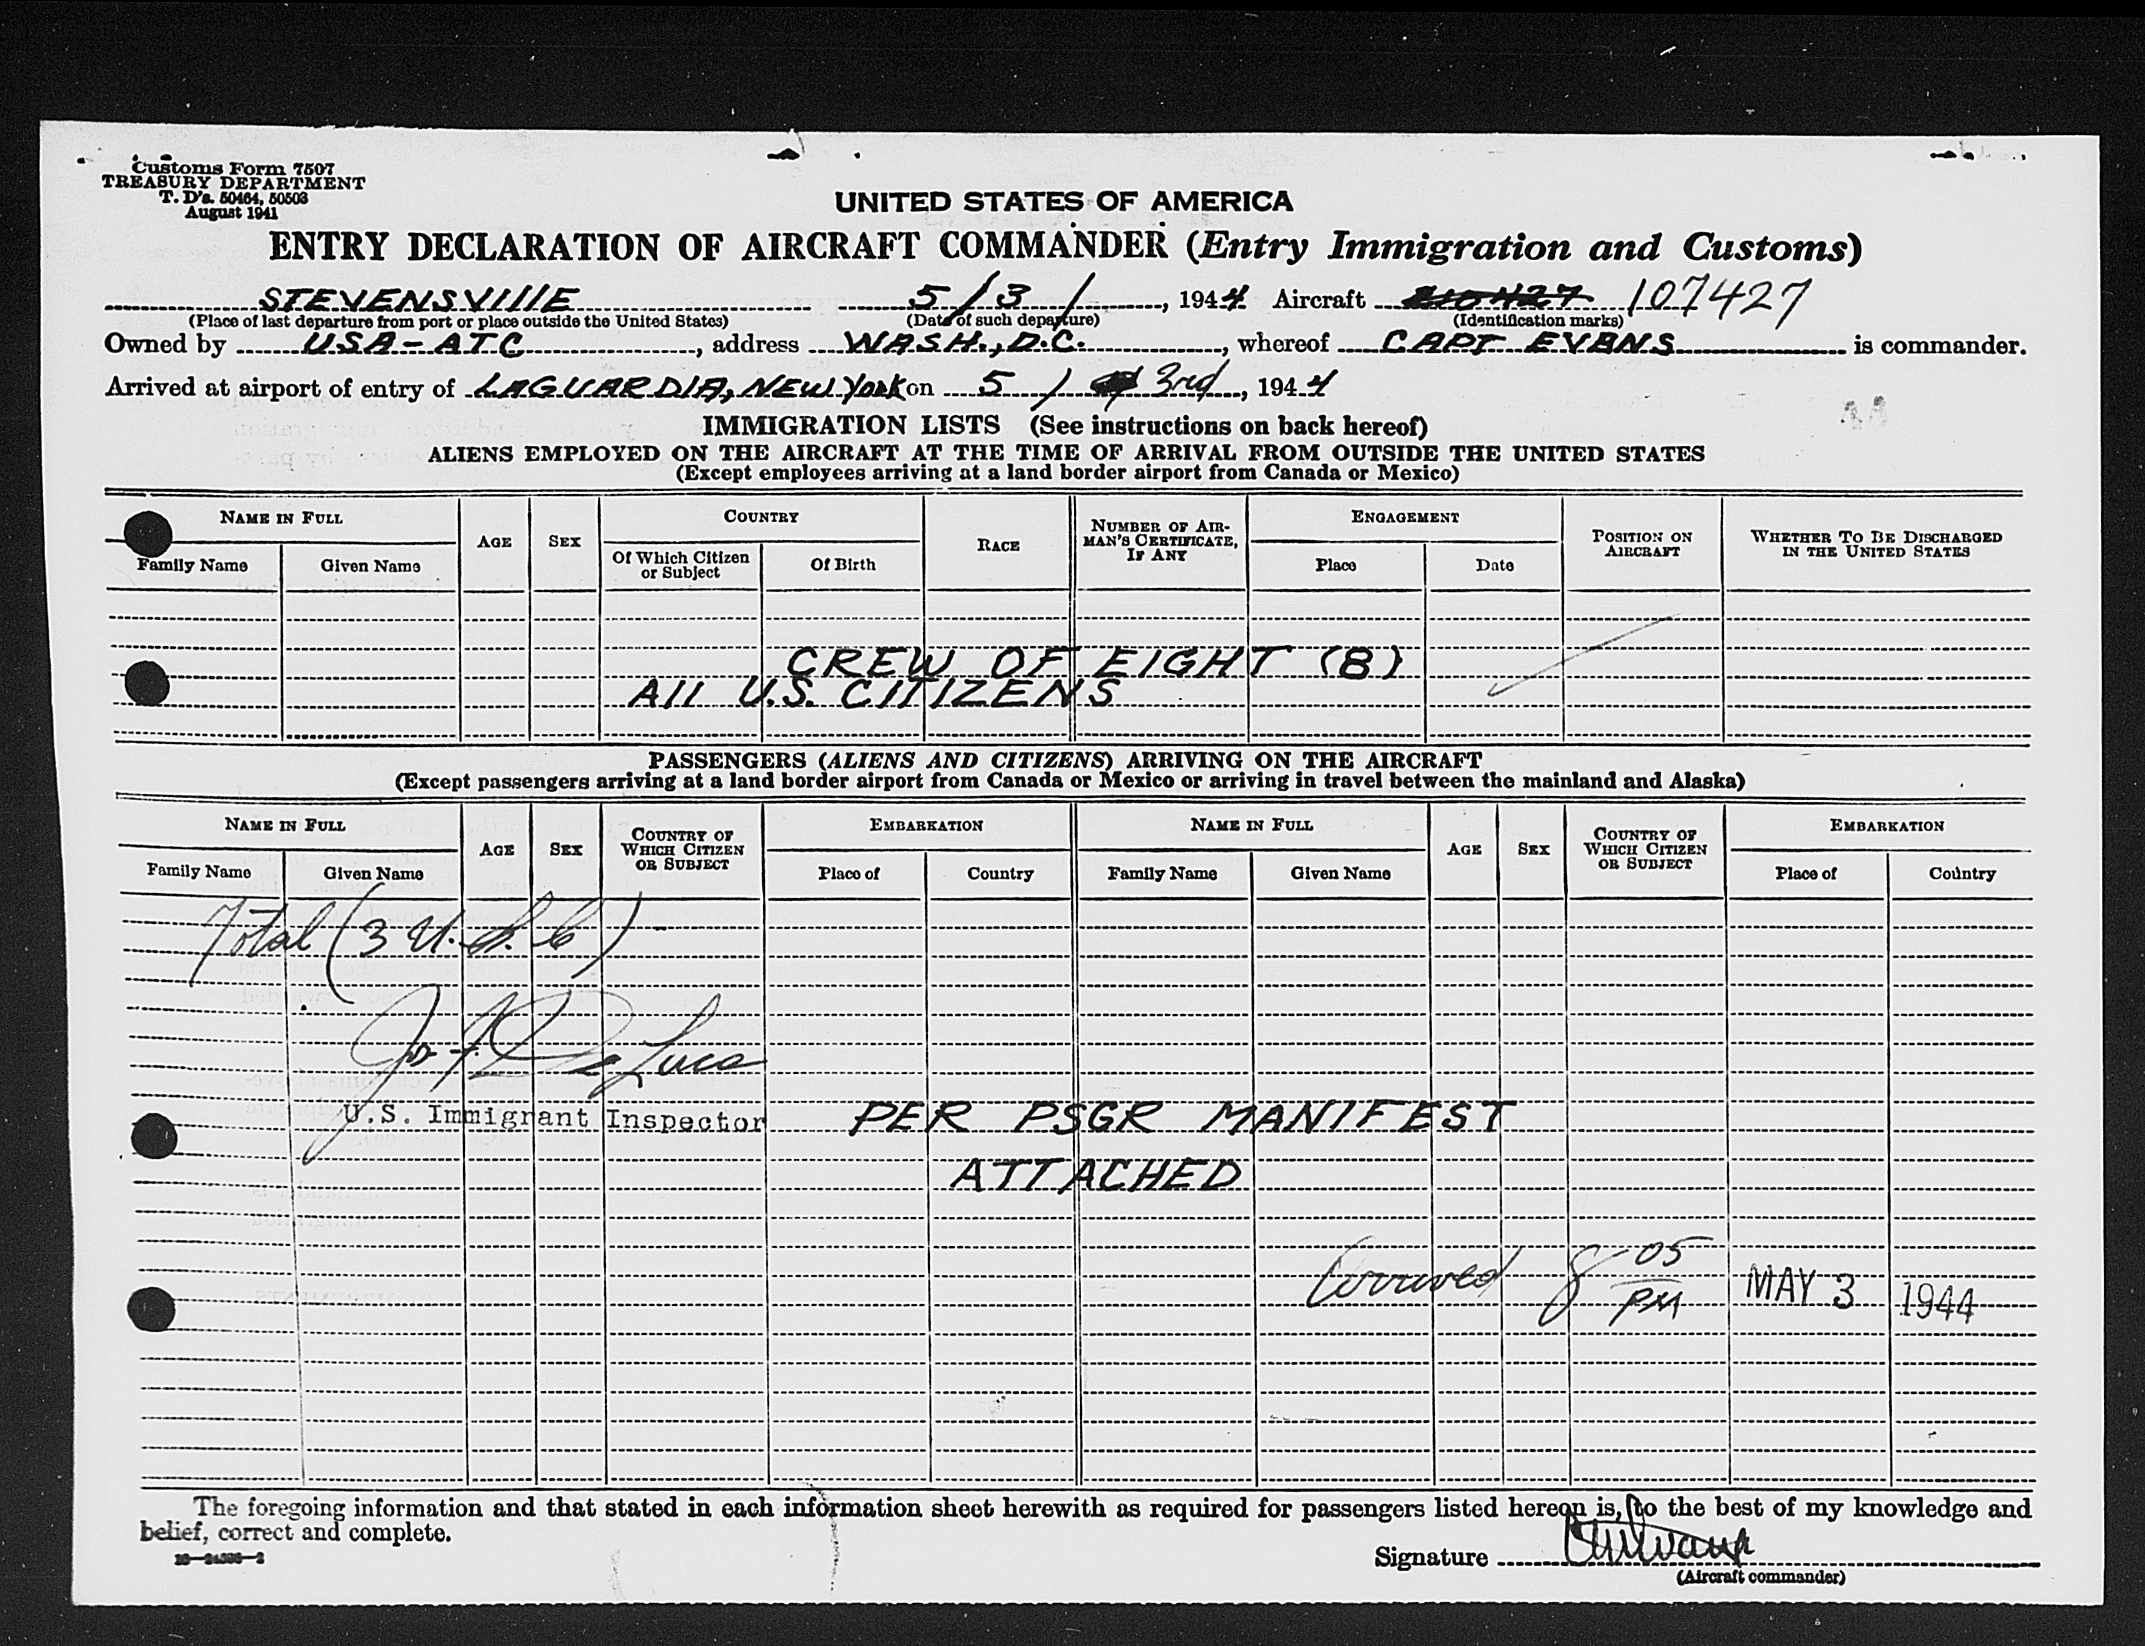 Customs Form 7507
TREASURY DEPARTMENT
T. D's. 50464, 50503
August 1941
UNITED STATES OF AMERICA
ENTRY DECLARATION OF AIRCRAFT COMMANDER (Entry Immigration and Customs)
STEVENSVIllE 5/3/, 1944 Aircraft 107427
(Place of last departure from port or place outside the United States) (Date of such departure) (Identification marks)
Owned by USA-ATC, address WASH., D.C., whereof CAPT EVANS is commander.
Arrived at airport of entry of LAGUARDIA, NEW York on 5 / 3rd, 1944
IMMIGRATION LISTS (See instructions on back hereof)
ALIENS EMPLOYED ON THE AIRCRAFT AT THE TIME OF ARRIVAL FROM OUTSIDE THE UNITED STATES
(Except employees arriving at a land border airport from Canada or Mexico)
NAME IN FULL AGE SEX COUNTRY RACE NUMBER OF AIRMAN'S CERTIFICATE, IF ANY ENGAGEMENT POSITION ON AIRCRAFT WHETHER TO BE DISCHARGED IN THE UNITED STATES
Family Name Given Name Of Which Citizen or Subject Of Birth Place Date
CREW OF EIGHT (8)
All U.S. CITIZENS
PASSENGERS (ALIENS AND CITIZENS) ARRIVING ON THE AIRCRAFT
(Except passengers arriving at a land border airport from Canada or Mexico or arriving in travel between the mainland and Alaska)
NAME IN FULL AGE SEX COUNTRY OF WHICH CITIZEN OR SUBJECT EMBARKATION NAME IN FULL AGE SEX COUNTRY OF WHICH CITIZEN OR SUBJECT EMBARKATION
Family Name Given Name Place of Country Family Name Given Name Place of Country
Total (3 U.S.C)
De Luca
U.S. Immigrant Inspector PER PSGR MANIFEST
ATTACHED
Arrived 8 05 PM MAY 3 1944
The foregoing information and that stated in each information sheet herewith as required for passengers listed hereon is, to the best of my knowledge and
belief, correct and complete.
Signature
(Aircraft commander)